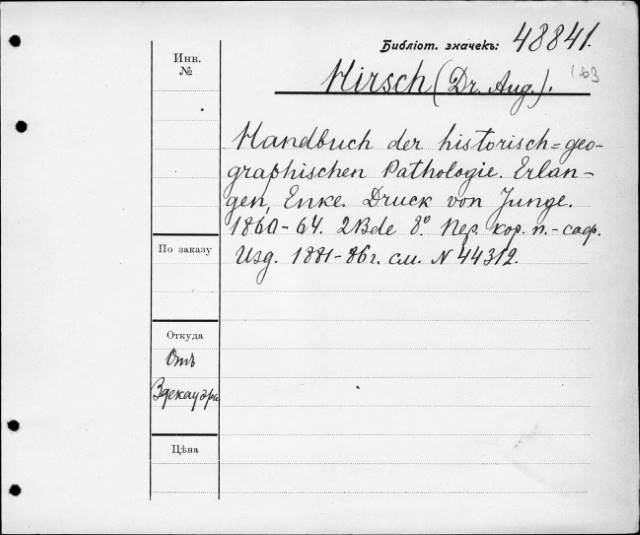 Библіот. значекъ: 48841.
Инв.
№
Hirsch (Dr. Aug.).
Handbuch der historisch=geo-
graphischen Pathologie. Erlan-
gen, Enke. Druck von Junge.
1860-64. 2Bde 8.º Пер. кор. п.-саф.
Изд. 1881-86г. см. N 44312.
По заказу
Откуда
Отъ
Здекауэра
Цѣна